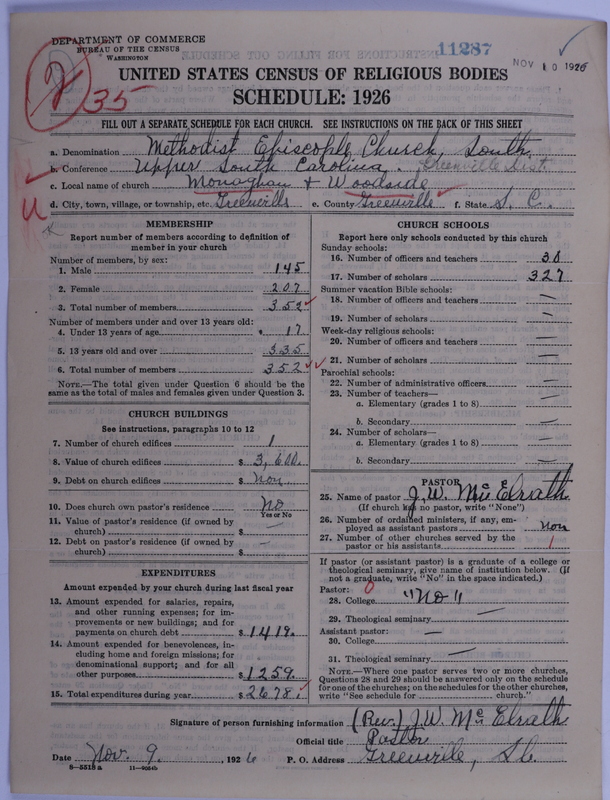 DEPARTMENT OF COMMERCE
BUREAU OF THE CENSUS
WASHINGTON
11287
NOV 10 1926
35
UNITED STATES CENSUS OF RELIGIOUS BODIES
SCHEDULE: 1926
FILL OUT A SEPARATE SCHEDULE FOR EACH CHURCH. SEE INSTRUCTIONS ON THE BACK OF THIS SHEET
a. Denomination Methodist Episcople Church, South
b. Conference Upper South Carolina. Greenville Dist
c. Local name of church Monaghan & Woodside
d. City, town, village, or township, etc. Greenville e. County Greenville f. State S. C.
MEMBERSHIP
Report number of members according to definition of
member in your church
Number of members, by sex:
1. Male 145
2. Female 207
3. Total number of members 352
Number of members under and over 13 years old:
4. Under 13 years of age 17
5. 13 years old and over 335
6. Total number of members 352
NOTE.—The total given under Question 6 should be the
same as the total of males and females given under Question 3.
CHURCH BUILDINGS
See instructions, paragraphs 10 to 12
7. Number of church edifices 1
8. Value of church edifices $ 3,600.
9. Debt on church edifices $ Non.
10. Does church own pastor's residence No
Yes or No
11. Value of pastor's residence (if owned by
church) $ —
12. Debt on pastor's residence (if owned by
church) $
EXPENDITURES
Amount expended by your church during last fiscal year
13. Amount expended for salaries, repairs,
and other running expenses; for im-
provements or new buildings; and for
payments on church debt $ 1419.
14. Amount expended for benevolences, in-
cluding home and foreign missions; for
denominational support; and for all
other purposes $ 1259.
15. Total expenditures during year $ 2678.
CHURCH SCHOOLS
Report here only schools conducted by this church
Sunday schools:
16. Number of officers and teachers 30
17. Number of scholars 327
Summer vacation Bible schools:
18. Number of officers and teachers —
19. Number of scholars —
Week-day religious schools:
20. Number of officers and teachers —
21. Number of scholars —
Parochial schools:
22. Number of administrative officers —
23. Number of teachers—
a. Elementary (grades 1 to 8) —
b. Secondary —
24. Number of scholars—
a. Elementary (grades 1 to 8) —
b. Secondary —
PASTOR
25. Name of pastor J. W. McElrath
(If church has no pastor, write "None")
26. Number of ordained ministers, if any, em-
ployed as assistant pastors Non
27. Number of other churches served by the
pastor or his assistants 1
If pastor (or assistant pastor) is a graduate of a college or
theological seminary, give name of institution below. (If
not a graduate, write "No" in the space indicated.)
Pastor: 0
28. College "No"
29. Theological seminary —
Assistant pastor: —
30. College
31. Theological seminary —
NOTE.—Where one pastor serves two or more churches,
Questions 28 and 29 should be answered only on the schedule
for one of the churches; on the schedules for the other churches,
write "See schedule for church."
Signature of person furnishing information (Rev.) J. W. McElrath
Official title Pastor
Date Nov. 9. 1926 P. O. Address Greenville, S.C.
8—5518a 11—9064b